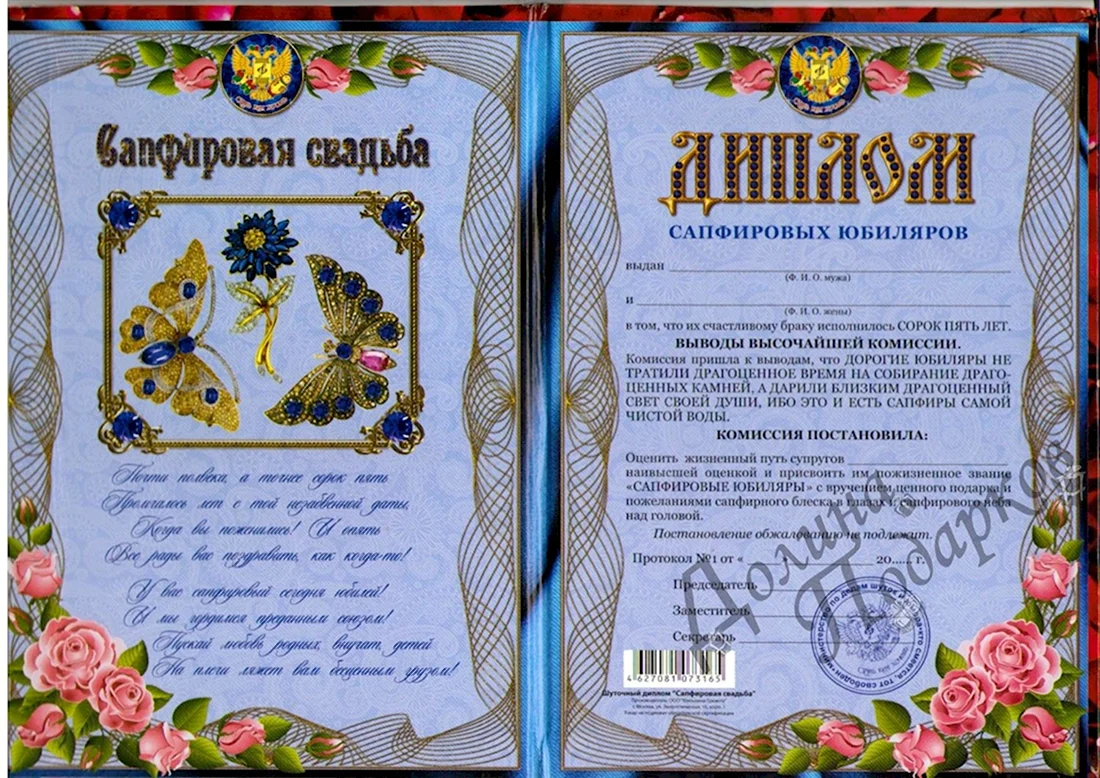 Сапфировая свадьба
Почти полвека, а точнее сорок пять
Промчалось лет с той незабвенной даты,
Когда вы поженились! И опять
Все рады вас поздравить, как когда-то!
У вас сапфировый сегодня юбилей!
И мы гордимся преданным союзом!
Пускай любовь родных, внучат, детей
На плечи ляжет вам бесценным грузом!
ДИПЛОМ
САПФИРОВЫХ ЮБИЛЯРОВ
выдан
(Ф. И. О. мужа)
и
(Ф. И. О. жены)
в том, что их счастливому браку исполнилось СОРОК ПЯТЬ ЛЕТ.
ВЫВОДЫ ВЫСОЧАЙШЕЙ КОМИССИИ.
Комиссия пришла к выводам, что ДОРОГИЕ ЮБИЛЯРЫ НЕ
ТРАТИЛИ ДРАГОЦЕННОЕ ВРЕМЯ НА СОБИРАНИЕ ДРАГО-
ЦЕННЫХ КАМНЕЙ, А ДАРИЛИ БЛИЗКИМ ДРАГОЦЕННЫЙ
СВЕТ СВОЕЙ ДУШИ, ИБО ЭТО И ЕСТЬ САПФИРЫ САМОЙ
ЧИСТОЙ ВОДЫ.
КОМИССИЯ ПОСТАНОВИЛА:
Оценить жизненный путь супругов
наивысшей оценкой и присвоить им пожизненное звание
«САПФИРОВЫЕ ЮБИЛЯРЫ» с вручением ценного подарка и
пожеланиями сапфирного блеска в глазах и сапфирового неба
над головой.
Постановление обжалованию не подлежит.
Протокол №1 от « 20...... г.
Председатель
Заместитель
Секретарь
Долина Подарков
министерство по делам шуток и
кто смеется, тот свободен
4 627081 073165
Шуточный диплом "Сапфировая свадьба"